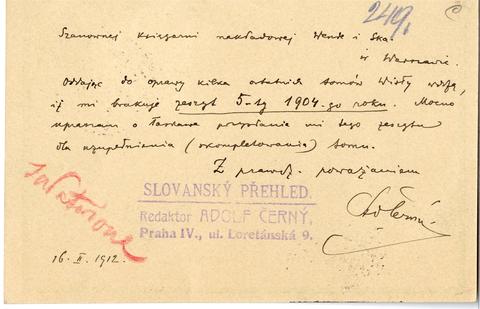 249.
Szanownej Księgarni nakładowej Wende i Ska.
w Warszawie.
Oddając do oprawy kilka ostatnich tomów Wisły widzę,
iż mi brakuje zeszyt 5-ty 1904-go roku. Mocno
upraszam o łaskawe przysłanie mi tego zeszytu
dla uzupełnienia (skompletowania) tomu.
Z prawdz. poważaniem
AdČerný
SLOVANSKÝ PŘEHLED.
Redaktor ADOLF ČERNÝ,
Praha IV., ul. Loretánská 9.
załatwione
16. II. 1912.